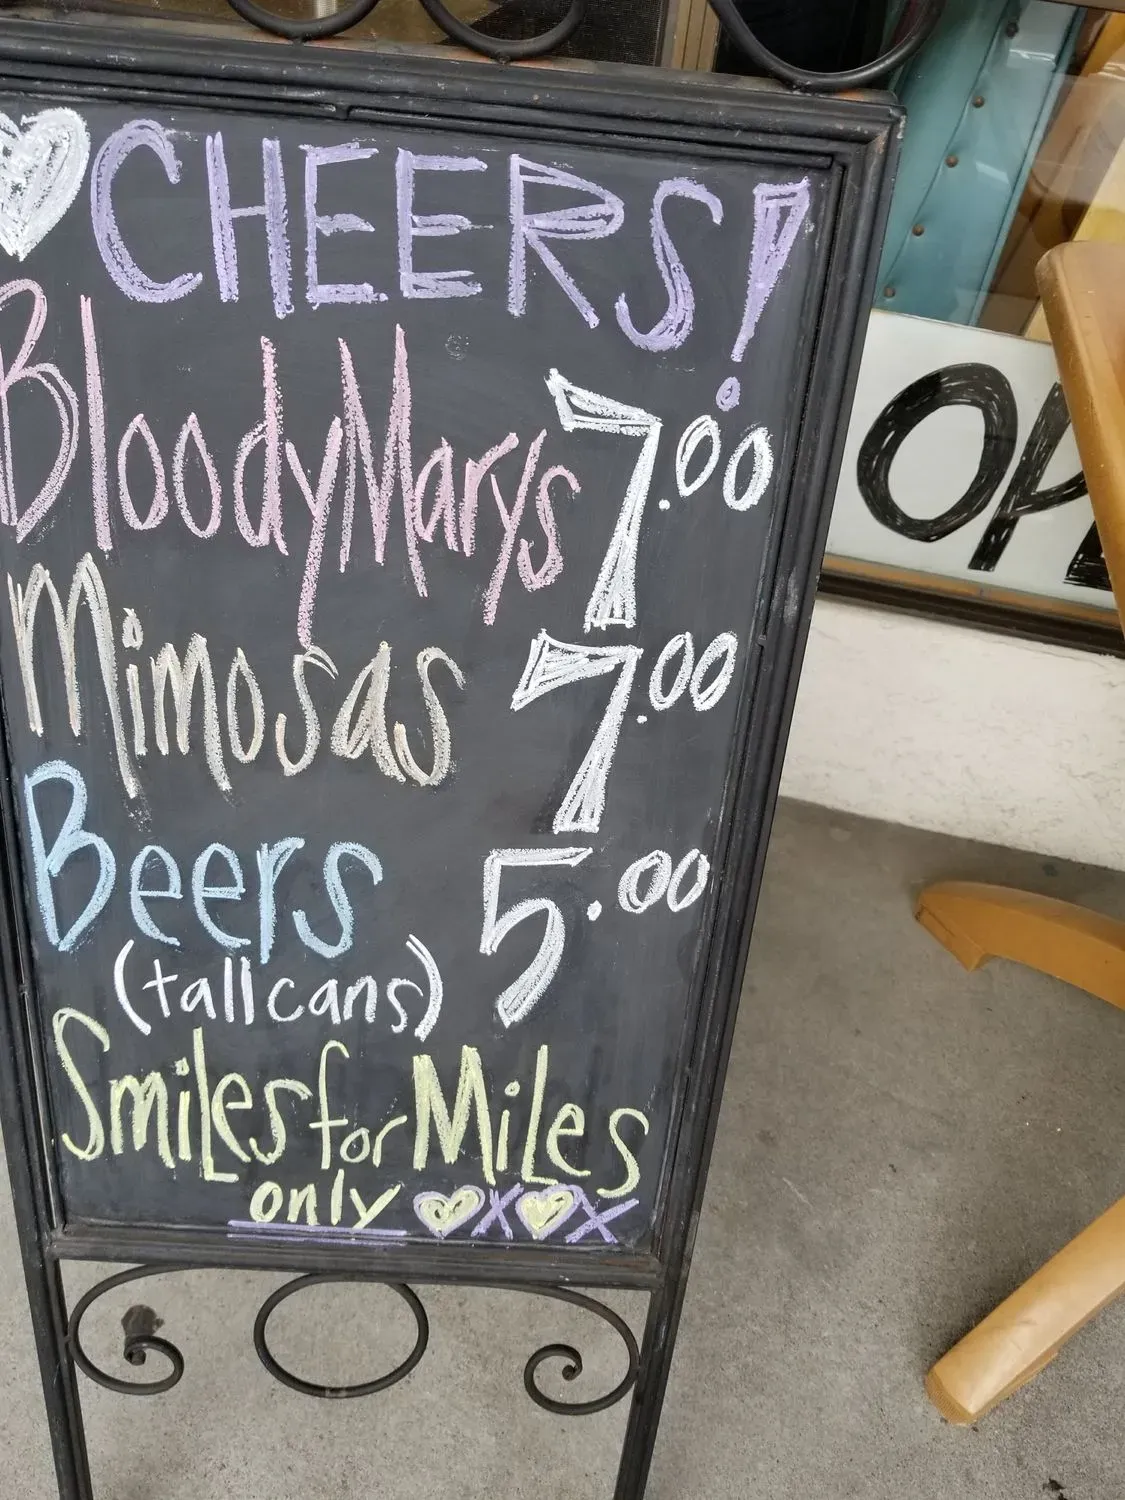 CHEERS!
Bloody Marys 7.00
Mimosas 7.00
Beers 5.00
(tall cans)
Smiles for Miles
only xx
OPE